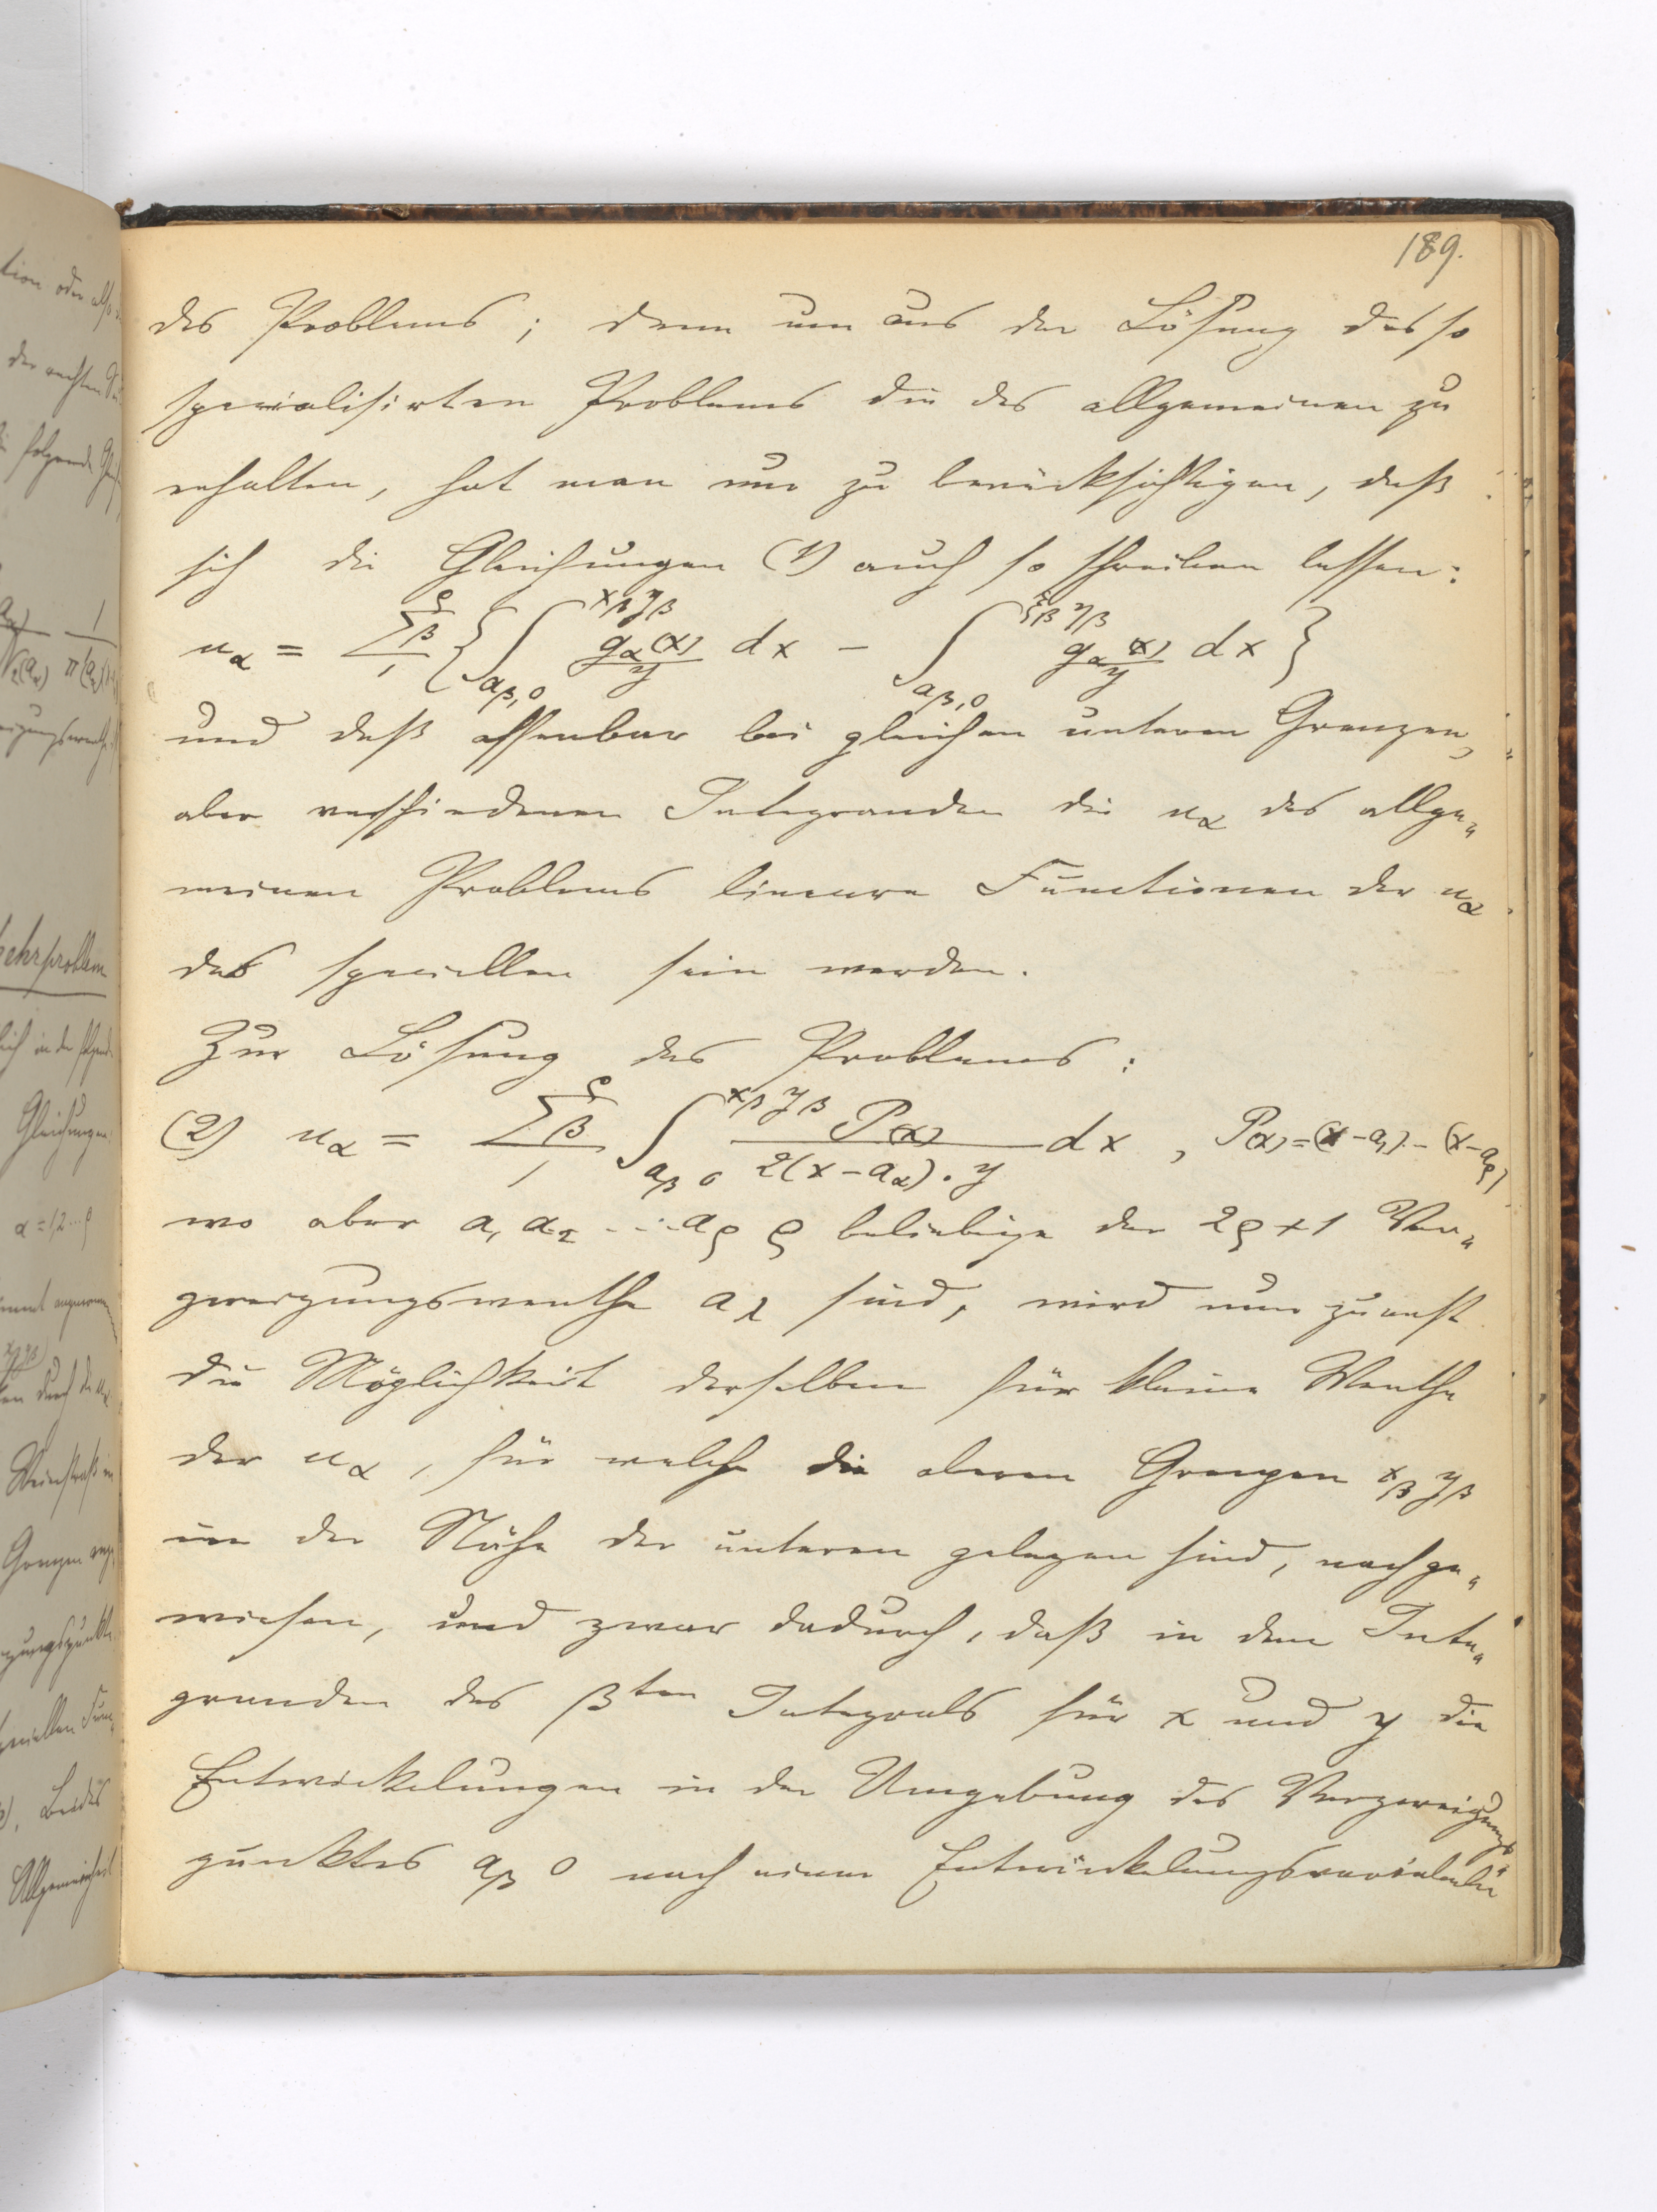 189.
des Problems ; denn um aus der Lösung des so
specialisirten Problems die des allgemeinen zu
erhalten, hat man nur zu berücksichtigen, daß
sich die Gleichungen (1) auch so schreiben lassen:
u_α = Σ_β^ρ_1 { ∫_{a_β,0}^{x_β y_β} g_α(x)/y dx − ∫_{a_β,0}^{ξ_β η_β} g_α(x)/y dx }
und daß offenbar bei gleichen unteren Grenzen,
aber verschiedenen Integranden die u_α des allge„
meinen Problems lineare Functionen der u_α
des speciellen sein werden.
Zur Lösung des Problems :
(2) u_α = Σ_β^ρ_1 ∫_{a_β 0}^{x_β y_β} P(x)/2(x−a_α).y dx , P(x)=(x−a_1)..(x−a_ρ)
wo aber a_1 a_2 ... a_ρ ρ beliebige der 2ρ+1 Ver„
zweigungswerthe a_λ sind, wird nun zuerst
die Möglichkeit derselben für kleine Werthe
der u_α, für welche die oberen Grenzen x_β y_β
in der Nähe der unteren gelegen sind, nachge„
wiesen, und zwar dadurch, daß in dem Inte„
granden des β^ten Integrals für x und y die
Entwickelungen in der Umgebung des Verzweigungs„
punktes a_β 0 nach einer Entwickelungsvariabeln